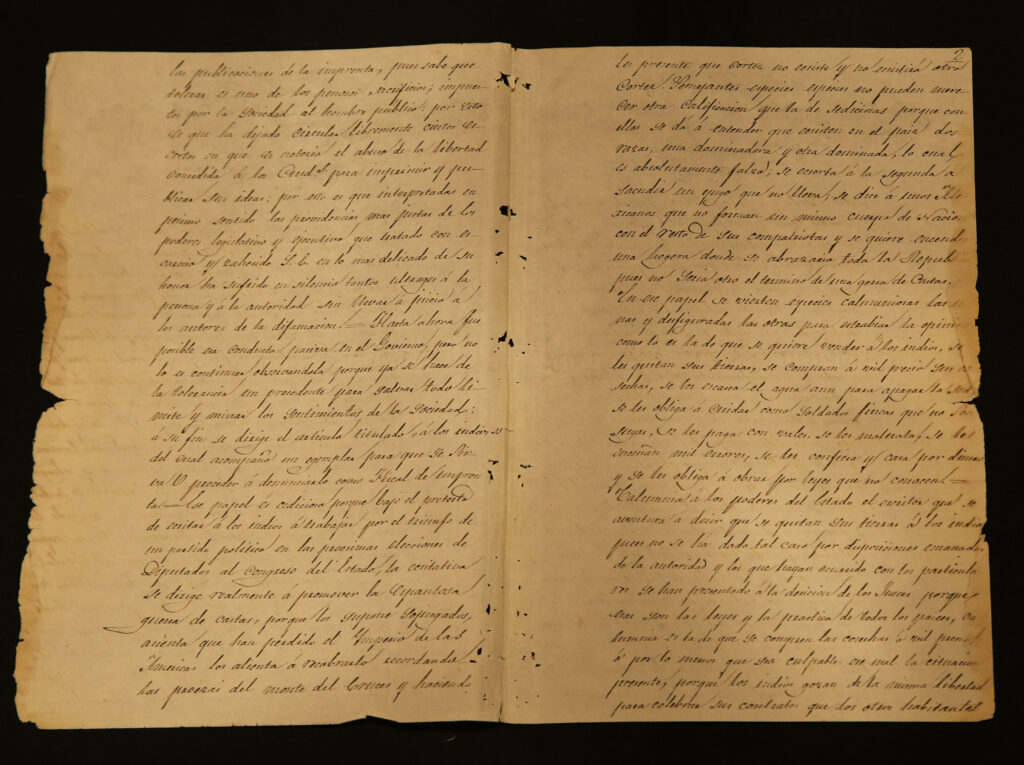 las publicaciones de la imprenta, pues sabe que
tolerar es uno de los penosos sacrificios; impues-
tos por la Sociedad al hombre publico: por esto
es que ha dejado circular libremente ciertos es-
critos en que es notorio el abuso de la libertad
concedida á los Ciud.s para imprimir y pu-
blicar sus ideas: por esto es que interpretadas en
pesimo sentido las providencias mas justas de los
poderes legislativo y ejecutivo que tratado con es-
carnio y zaherido S. E. en lo mas delicado de su
honor ha sufrido en silencio tantos ultrages á la
persona y á la autoridad sin llevar á juicio á
los autores de la difamacion. — Hasta ahora fue
posible esa conducta pasiva en el Govierno, pero no
lo es continuar observandola porque ya se hace de
la tolerancia un precedente para salvar todo li-
mite y minar los sentimientos de la Sociedad:
á su fin se dirige el articulo titulado á los indios,
del cual acompaño un egemplar para que se sir-
va V. proceder á denunciarlo como Fiscal de impren-
ta. — Ese papel es cedicioso porque bajo el pretesto
de ecsitar á los indios á trabajar por el triunfo de
un partido politico en las procsimas elecciones de
Diputados al Congreso del Estado, la tentativa
se dirige realmente á promover la espantosa
guerra de castas, porque los supone sojuzgados,
asienta que han perdido el Imperio de las
Americas los alienta á recobrarlo recordando
las proezas del monte del Cruces y haciendo
2
les presente que Cortez no ecsiste y no ecsistirá otro
Cortez. Semejantes especies especies no pueden mere-
cer otra calificacion que la de sediciosas porque con
ellas se dá á entender que ecsisten en el pais dos
razas, una dominadora y otra dominada, lo cual
es absolutamente falso; se ecsorta á la segunda á
sacudir un yugo que no lleva; se dice á unos Me-
xicanos que no forman un mismo cuerpo de Nacion
con el resto de sus compatriotas y se quiere encender
una hoguera donde se abrazaria toda la Republi
pues no seria otro el termino de una guerra de Castas.
En ese papel se vierten especies calumniosas las u-
nas y desfiguradas las otras para estraviar la opinion
como lo es la de que se quiere vender á los indios, se
les quitan sus tierras, se compran á vil precio sus co-
sechas, se les escasea el agua aun para apagar la sed,
se les obliga á cuidar como Soldados fincas que no son
suyas, se les paga con vales, se les maltrata, se les
enseñan mil errores, se les confiesa y casa por dinero
y se les obliga á obrar por leyes que no conocen. —
Calumnia á los poderes del Estado el escritor que se
aventura á decir que se quitan sus tierras á los indios
pues no se ha dado tal caso por disposiciones emanadas
de la autoridad y los que hayan ocurrido con los particula-
res se han presentado á la decicion de los Jueces porque
esas son las leyes y la practica de todos los paises, ca-
lumnia es la de que se compran las cosechas á vil precio
ó por lo menos que sea culpable en mal la cituacion
presente, porque los indios gozan de la misma libertad
para celebrar sus contratos que los otros habitantes